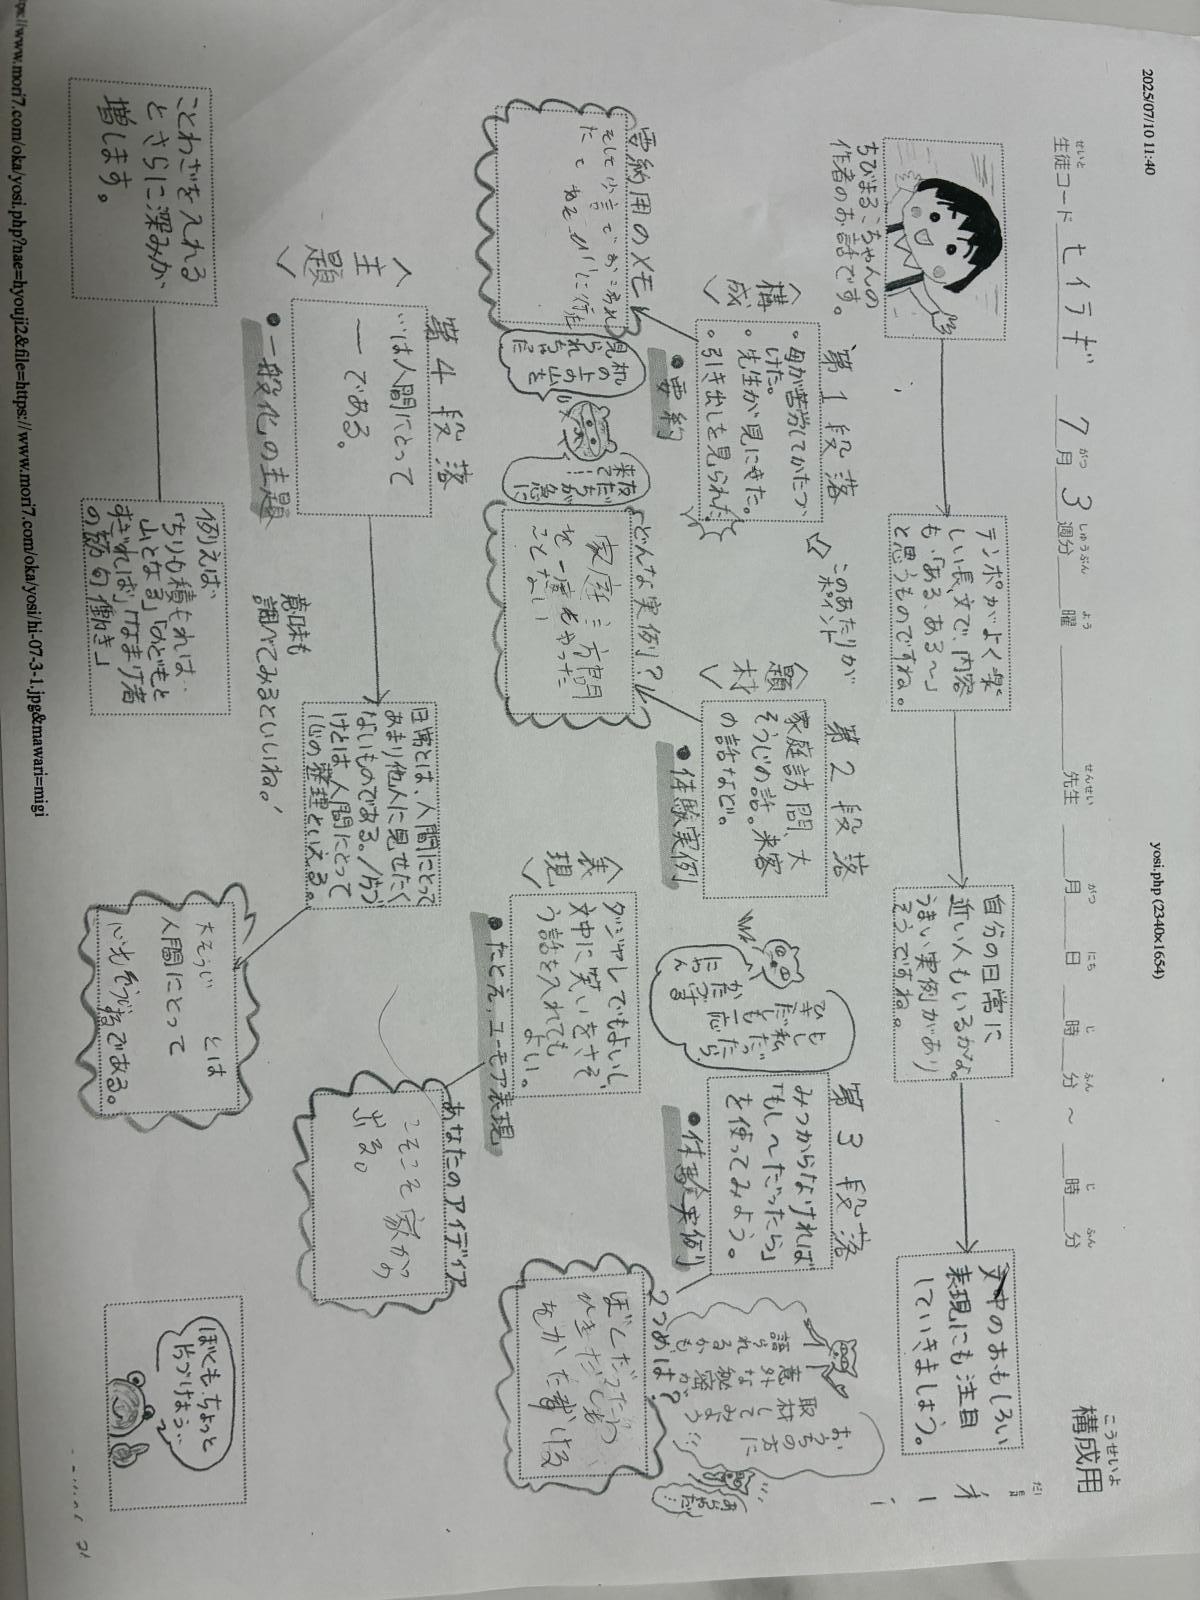 2025/07/10 11:40
yosi.php (2340x1654)
せいと
生徒コード ヒイラギ
7月3週分
がつ
しゅうぶん
よう
曜
せんせい
先生
がつ
月
にち
日
じ
時
ふん
分
～
じ
時
ふん
分
こうせいよ
構成用
ちびまるこちゃんの
作者のお話です。
テンポがよく楽
しい長文で、内容
も、「ある、ある～」
と思うものですね。
自分の日常に
近い人もいるかな。
うまい実例があり
そうですね。
文中のおもしろい
表現にも注目
していきましょう。
第1段落
〈構成〉
。母が苦労してかたづ
けた。
。先生が見にきた。
。引き出しを見られた。
●要約
このあたりが
ポイント
要約用のメモ
机の上の山を
見られちゃ
家庭訪問
を一度もやった
ことない
どんな実例?
第2段落
〈題材〉
家庭訪問、大
そうじの話。来客
の話など。
●体験実例
第3段落
みつからなければ
「もし～だったら」
を使ってみよう。
●体験実例
2つめは?
おうちの方に
取材してみよう
意外な秘密が
語られるかも
〈表現〉
ダジャレでもよいし、
文中に笑いをさそ
う話を入れても
よい。
●たとえ、ユーモア表現
あなたのアイディア
こそっと家から
出る。
第4段落
〈主題〉
…は人間にとって
―である。
●一般化の主題
日常とは、人間にとって
あまり他人に見せたく
ないものである。/片づ
けとは人間にとって
心の整理といえる。
大そうじ とは
人間にとって
である。
ことわざを入れる
とさらに深みが
増します。
例えば、
「ちりも積もれば…
山となる」「のどもと
すぎれば」「なまけ者
の節句働き」
意味も
調べてみるといいね。
ぼくも、ちょっと
片づけよう…
https://www.mori7.com/oka/yosi.php?nae=hyouji2&file=https://www.mori7.com/oka/yosi/hi-07-3-1.jpg&mawari=migi